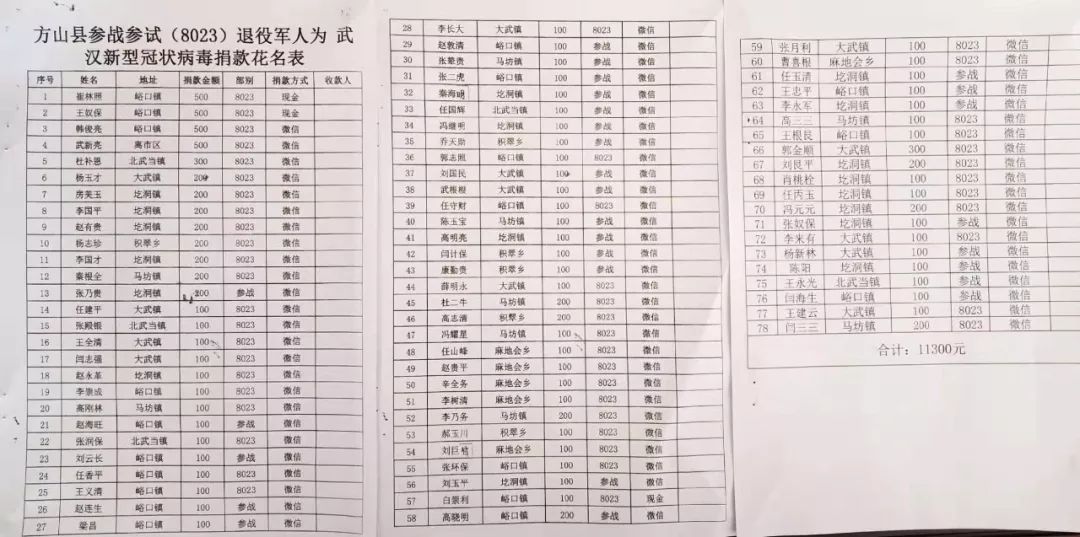 方山县参战参试（8023）退役军人为 武
汉新型冠状病毒捐款花名表
序号 姓名 地址 捐款金额 部别 捐款方式 收款人
1 崔林照 峪口镇 500 8023 现金
2 王奴保 峪口镇 500 8023 现金
3 韩俊亮 峪口镇 500 8023 微信
4 武新亮 离市区 500 8023 微信
5 杜补恩 北武当镇 300 8023 微信
6 杨玉才 大武镇 200 8023 微信
7 房美玉 圪洞镇 200 8023 微信
8 李国平 圪洞镇 200 8023 微信
9 赵有贵 圪洞镇 200 8023 微信
10 杨志珍 积翠乡 200 8023 微信
11 李国才 圪洞镇 200 8023 微信
12 秦根全 马坊镇 200 8023 微信
13 张乃贵 圪洞镇 200 参战 微信
14 任建平 大武镇 100 8023 微信
15 张殿银 北武当镇 100 8023 微信
16 王全清 大武镇 100 8023 微信
17 闫志强 大武镇 100 8023 微信
18 赵永革 圪洞镇 100 8023 微信
19 李崇成 峪口镇 100 8023 微信
20 高刚林 马坊镇 100 8023 微信
21 赵海旺 峪口镇 100 参战 微信
22 张润保 北武当镇 100 8023 微信
23 刘云长 峪口镇 100 参战 微信
24 任香平 峪口镇 100 8023 微信
25 王义清 峪口镇 100 8023 微信
26 赵连生 峪口镇 100 参战 微信
27 梁昌 峪口镇 100 参战 微信
28 李长大 大武镇 100 8023 微信
29 赵敦清 峪口镇 100 参战 微信
30 张攀贵 马坊镇 100 参战 微信
31 张二虎 峪口镇 100 参战 微信
32 秦海明 圪洞镇 100 参战 微信
33 任国辉 北武当镇 100 参战 微信
34 冯继明 圪洞镇 100 参战 微信
35 乔天勋 积翠乡 100 参战 微信
36 郭志照 峪口镇 100 8023 微信
37 刘国民 大武镇 100 参战 微信
38 武根根 大武镇 100 参战 微信
39 任守财 峪口镇 100 8023 微信
40 陈玉宝 马坊镇 100 参战 微信
41 高明亮 圪洞镇 100 参战 微信
42 闫计保 积翠乡 100 参战 微信
43 康勤贵 积翠乡 100 参战 微信
44 薛明永 大武镇 100 8023 微信
45 杜二牛 马坊镇 200 8023 微信
46 高志清 积翠乡 200 参战 微信
47 冯耀星 马坊镇 100 参战 微信
48 任山峰 麻地会乡 100 8023 微信
49 赵贵平 麻地会乡 100 参战 微信
50 辛全务 麻地会乡 100 8023 微信
51 李树清 麻地会乡 100 8023 微信
52 李乃务 马坊镇 200 8023 微信
53 郝玉川 积翠乡 100 8023 微信
54 刘巨 麻地会乡 100 8023 微信
55 张环保 峪口镇 100 8023 微信
56 刘玉平 圪洞镇 100 8023 微信
57 白景利 峪口镇 100 8023 现金
58 高晓明 峪口镇 200 参战 微信
59 张月利 大武镇 100 8023 微信
60 曹喜根 麻地会乡 100 8023 微信
61 任玉清 圪洞镇 100 参战 微信
62 王忠平 峪口镇 100 8023 微信
63 李永军 圪洞镇 100 参战 微信
64 高三三 马坊镇 100 参战 微信
65 王根民 峪口镇 100 8023 微信
66 郭金顺 大武镇 300 8023 微信
67 刘艮平 圪洞镇 200 8023 微信
68 肖桃栓 圪洞镇 100 8023 微信
69 任丙玉 圪洞镇 100 8023 微信
70 冯元元 圪洞镇 200 8023 微信
71 张奴保 圪洞镇 100 参战 微信
72 李来有 大武镇 100 8023 微信
73 杨新林 大武镇 100 参战 微信
74 陈阳 圪洞镇 100 参战 微信
75 王永光 北武当镇 100 参战 微信
76 闫海生 峪口镇 100 参战 微信
77 王建云 大武镇 100 8023 微信
78 闫三三 马坊镇 200 8023 微信
合计：11300元